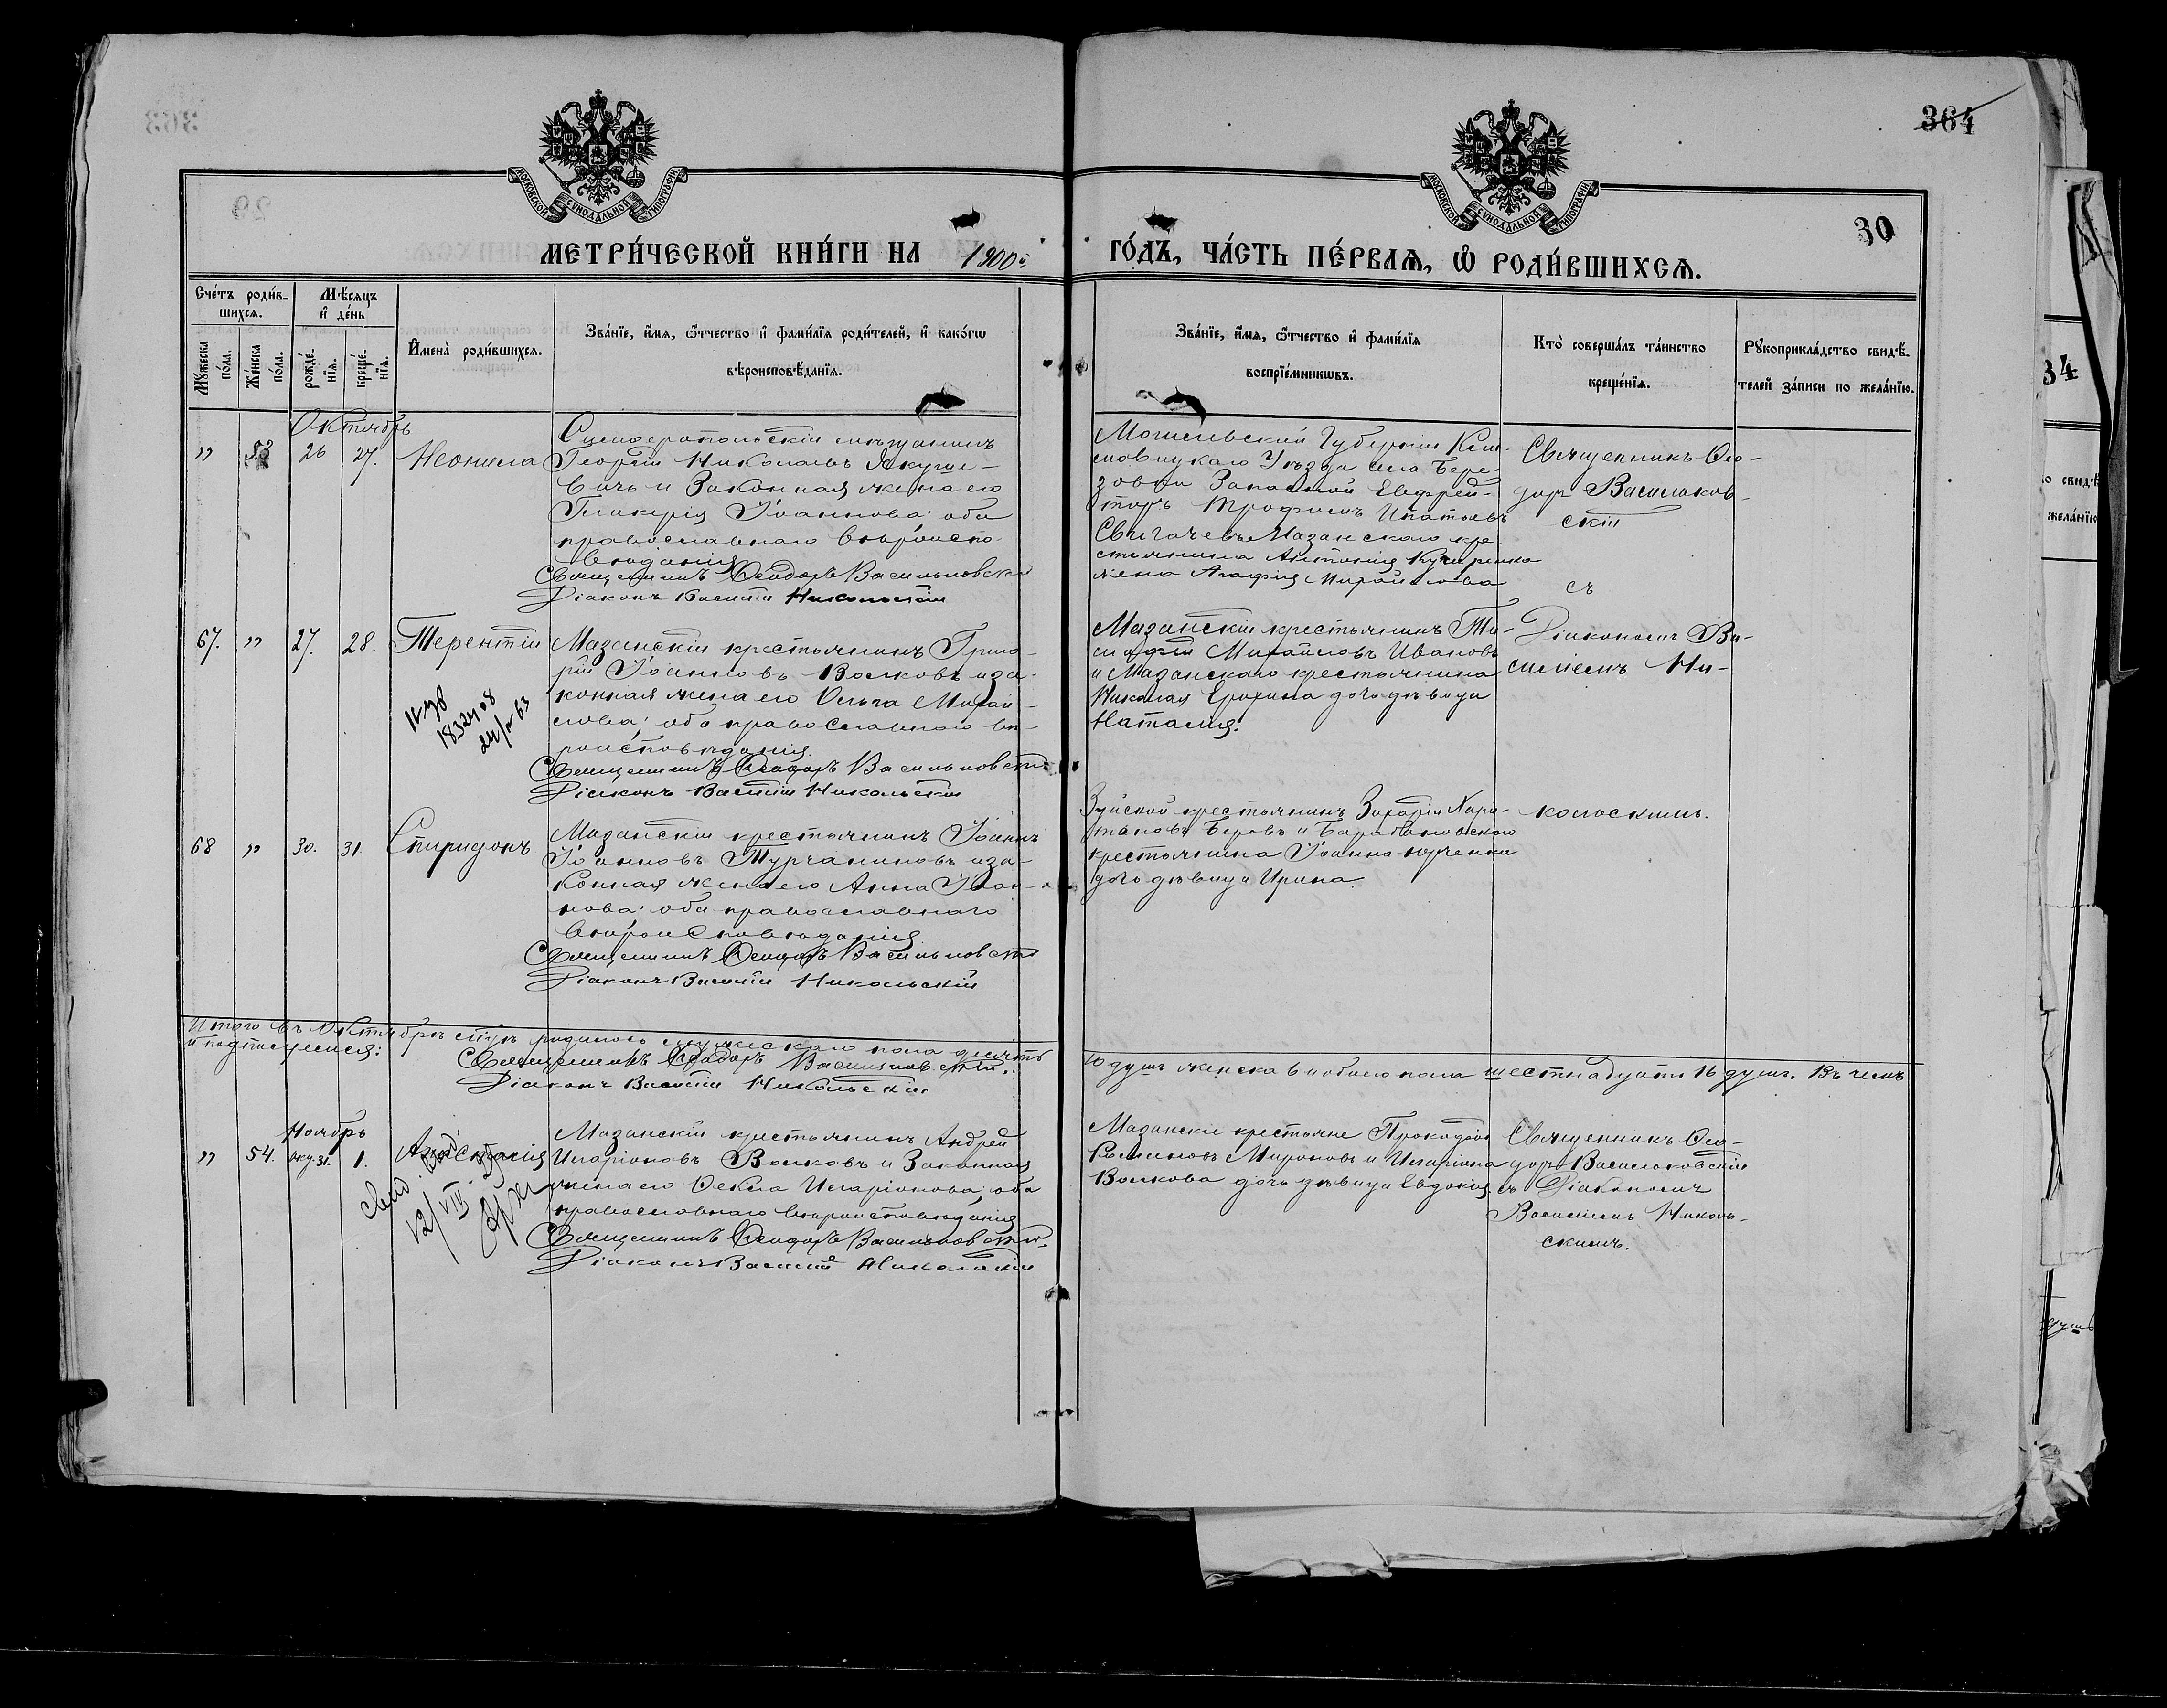 364
30
МОСКОВСКОЙ СУНОДАЛЬНОЙ ТИПОГРАФІИ
МОСКОВСКОЙ СУНОДАЛЬНОЙ ТИПОГРАФІИ
МЕТРИ́ЧЕСКОЙ КНИ́ГИ НА 1900й
ГО́ДЪ, ЧА́СТЬ ПЕ́РВАѦ, Ѽ РОДИ́ВШИХСѦ.
Сче́тъ роди́в-
шихся.
Мѣ́сяцъ
и҆ де́нь
Мꙋ́жеска по́ла.
Же́нска по́ла.
рожде́-
нїя.
креще́-
нїя.
И҆мена̀ роди́вшихся.
Зва́нїе, и҆́мя, ѻ҆́тчество и҆ фами́лїя роди́телей, и҆ како́гѡ
вѣроисповѣ́данїя.
Зва́нїе, и҆́мя, ѻ҆́тчество и҆ фами́лїя
воспрїе́мникѡвъ.
Кто̀ соверша́лъ та́инство
креще́нїя.
Рꙋкоприкла́дство свидѣ́-
телей за́писи по жела́нїю.
Октябрь
" 53 26 27. Неонила
Симферопольскій мѣщанинъ
Георгій Николаевъ Якуше-
вичъ и Законная жена его
Гликерія Іоаннова: оба
православнаго вѣроиспо-
вѣданія
Священникъ Ѳеодоръ Васильковскій
Діаконъ Василій Никольскій
Могилевской Губерніи Кли-
мовицкаго Уѣзда села Бере-
зовки Запасной Ефрей-
торъ Трофимъ Игнатьевъ
Мазанскаго кре-
стьянина Антонія Кучеренко
жена Агафія Михайлова
Священникъ Ѳео-
доръ Васильков-
скій
съ
67. " 27. 28. Терентій
Мазанскій крестьянинъ Григо-
рій Іоанновъ Волковъ и за-
конная жена его Ольга Михай-
лова; оба православнаго вѣ-
роисповѣданія.
Священникъ Ѳеодоръ Васильковскій
Діаконъ Василій Никольскій
Мазанскій крестьянинъ Ти-
мофей Михайловъ Ивановъ
и Мазанскаго крестьянина
Николая Ерохина дочь дѣвица
Наталія.
Діакономъ Ва-
силіемъ Ни-
68 " 30. 31. Спиридонъ
Мазанскій крестьянинъ Іоаннъ
Іоанновъ Турчаниновъ и за-
конная жена его Анна Іоан-
нова: оба православнаго
вѣроисповѣданія
Священникъ Ѳеодоръ Васильковскій
Діаконъ Василій Никольскій
Зуйской крестьянинъ Захарій Хари-
тоновъ Беровъ и Барабановскаго
крестьянина Іоанна Юрченки
дочь дѣвица Ирина.
кольскимъ.
Итого въ Октябрѣ м-цѣ родилось мужескаго пола десять
10 душъ женска 6 и обоего пола шестнадцать 16 душъ. Въ чемъ
и подписуемся:
Священникъ Ѳеодоръ Васильковскій.
Діаконъ Василій Никольскій
Ноябрь
" 54. Окт. 31. 1. Анастасія
Мазанскій крестьянинъ Андрей
Иларіоновъ Волковъ и Законная
жена его Ѳекла Иларіонова; оба
православнаго вѣроисповѣданія
Священникъ Ѳеодоръ Васильковскій.
Діаконъ Василій Никольскій
Мазанскіе крестьяне Прокофій
Мироновъ и Иларіона
Волкова дочь дѣвица Евдокія.
Священникъ Ѳео-
доръ Васильковскій
съ Діакономъ
Василіемъ Николь-
скимъ.
34